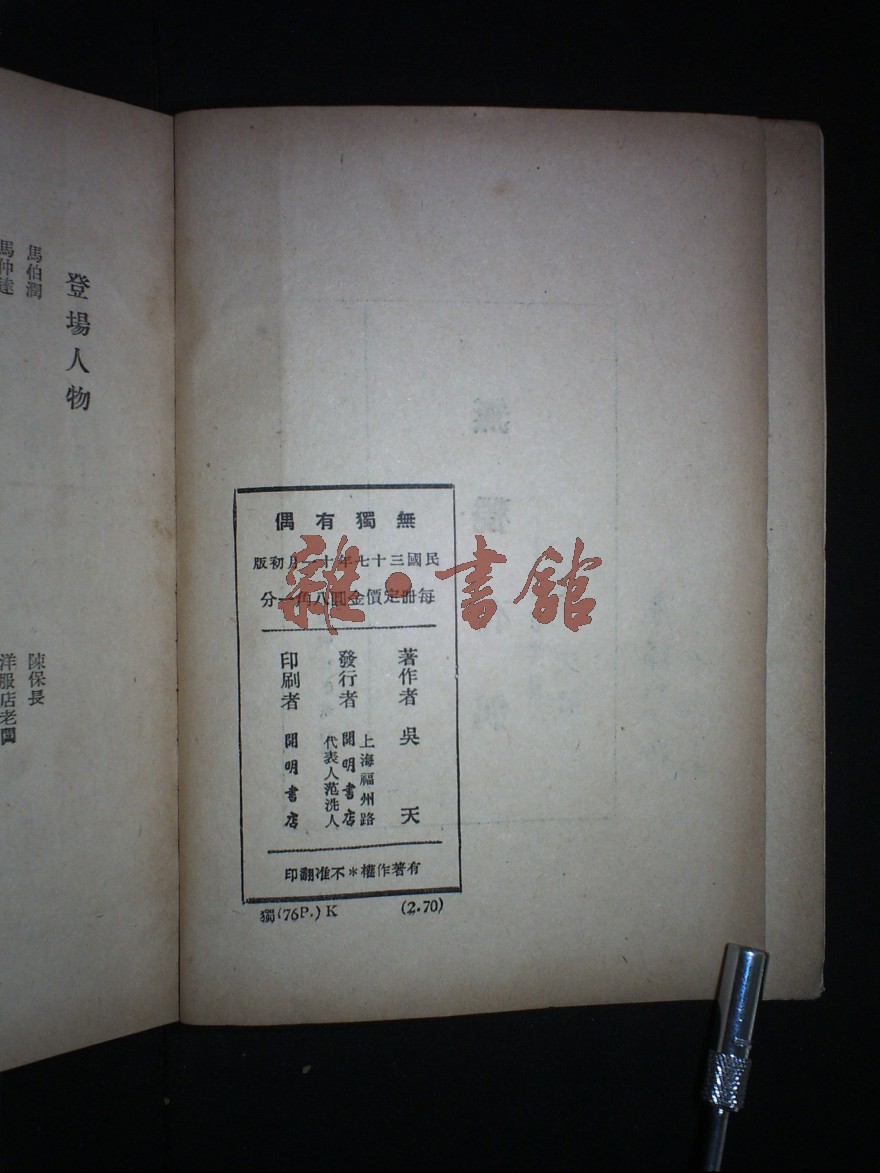 登場人物
馬伯潤　陳保長
馬仲達　洋服店老闆
無獨有偶
民國三十七年十一月初版
每冊定價金圓八角一分
著作者　吳天
上海福州路
發行者　開明書店
代表人范洗人
印刷者　開明書店
有著作權＊不准翻印
獨(76P.)K　(2.70)
雜·書館